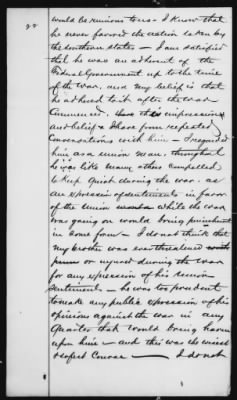 22
would be ruinous to us - I know that
he never favored the action taken by
the southern states - I am satisfied
that he was an adherent of the
Federal Government up to the time
of the war, and my belief is that
he adhered to it after the war
commenced. this impression
and belief I have from repeated
conversations with him - I regarded
him as a union man, though
he was like many others compelled
to keep quiet during the war, as
an expression of sentiments in favor
of the union while the war
was going on would bring punishment
in some form - I do not think that
my brother was ever threatened with
or injured during the war
for any expression of his union
sentiments - he was too prudent
to make any public expression of his
opinions against the war in any
quarter that would bring harm
upon him - and this was the wisest
& safest course - I do not